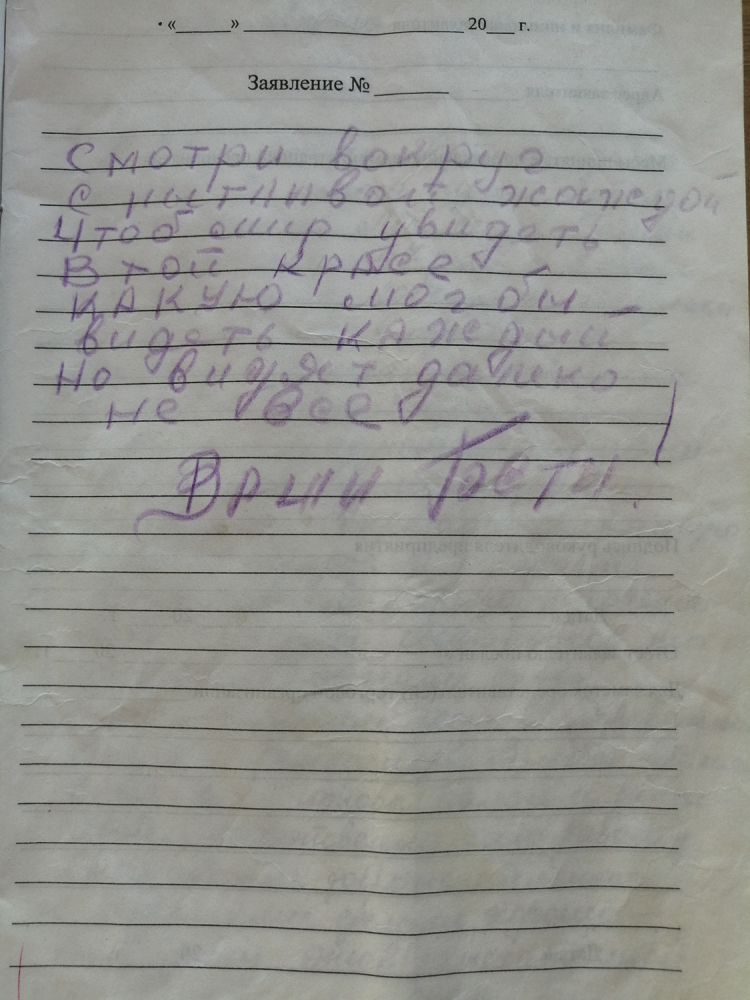 «______» ______________________ 20___ г.
Заявление № ________
Смотри вокруг
с пытливой жаждой
Чтоб мир увидеть
В той красе
какую мог бы
видеть каждый
Но видят далеко
не все!
Ваши Гости.